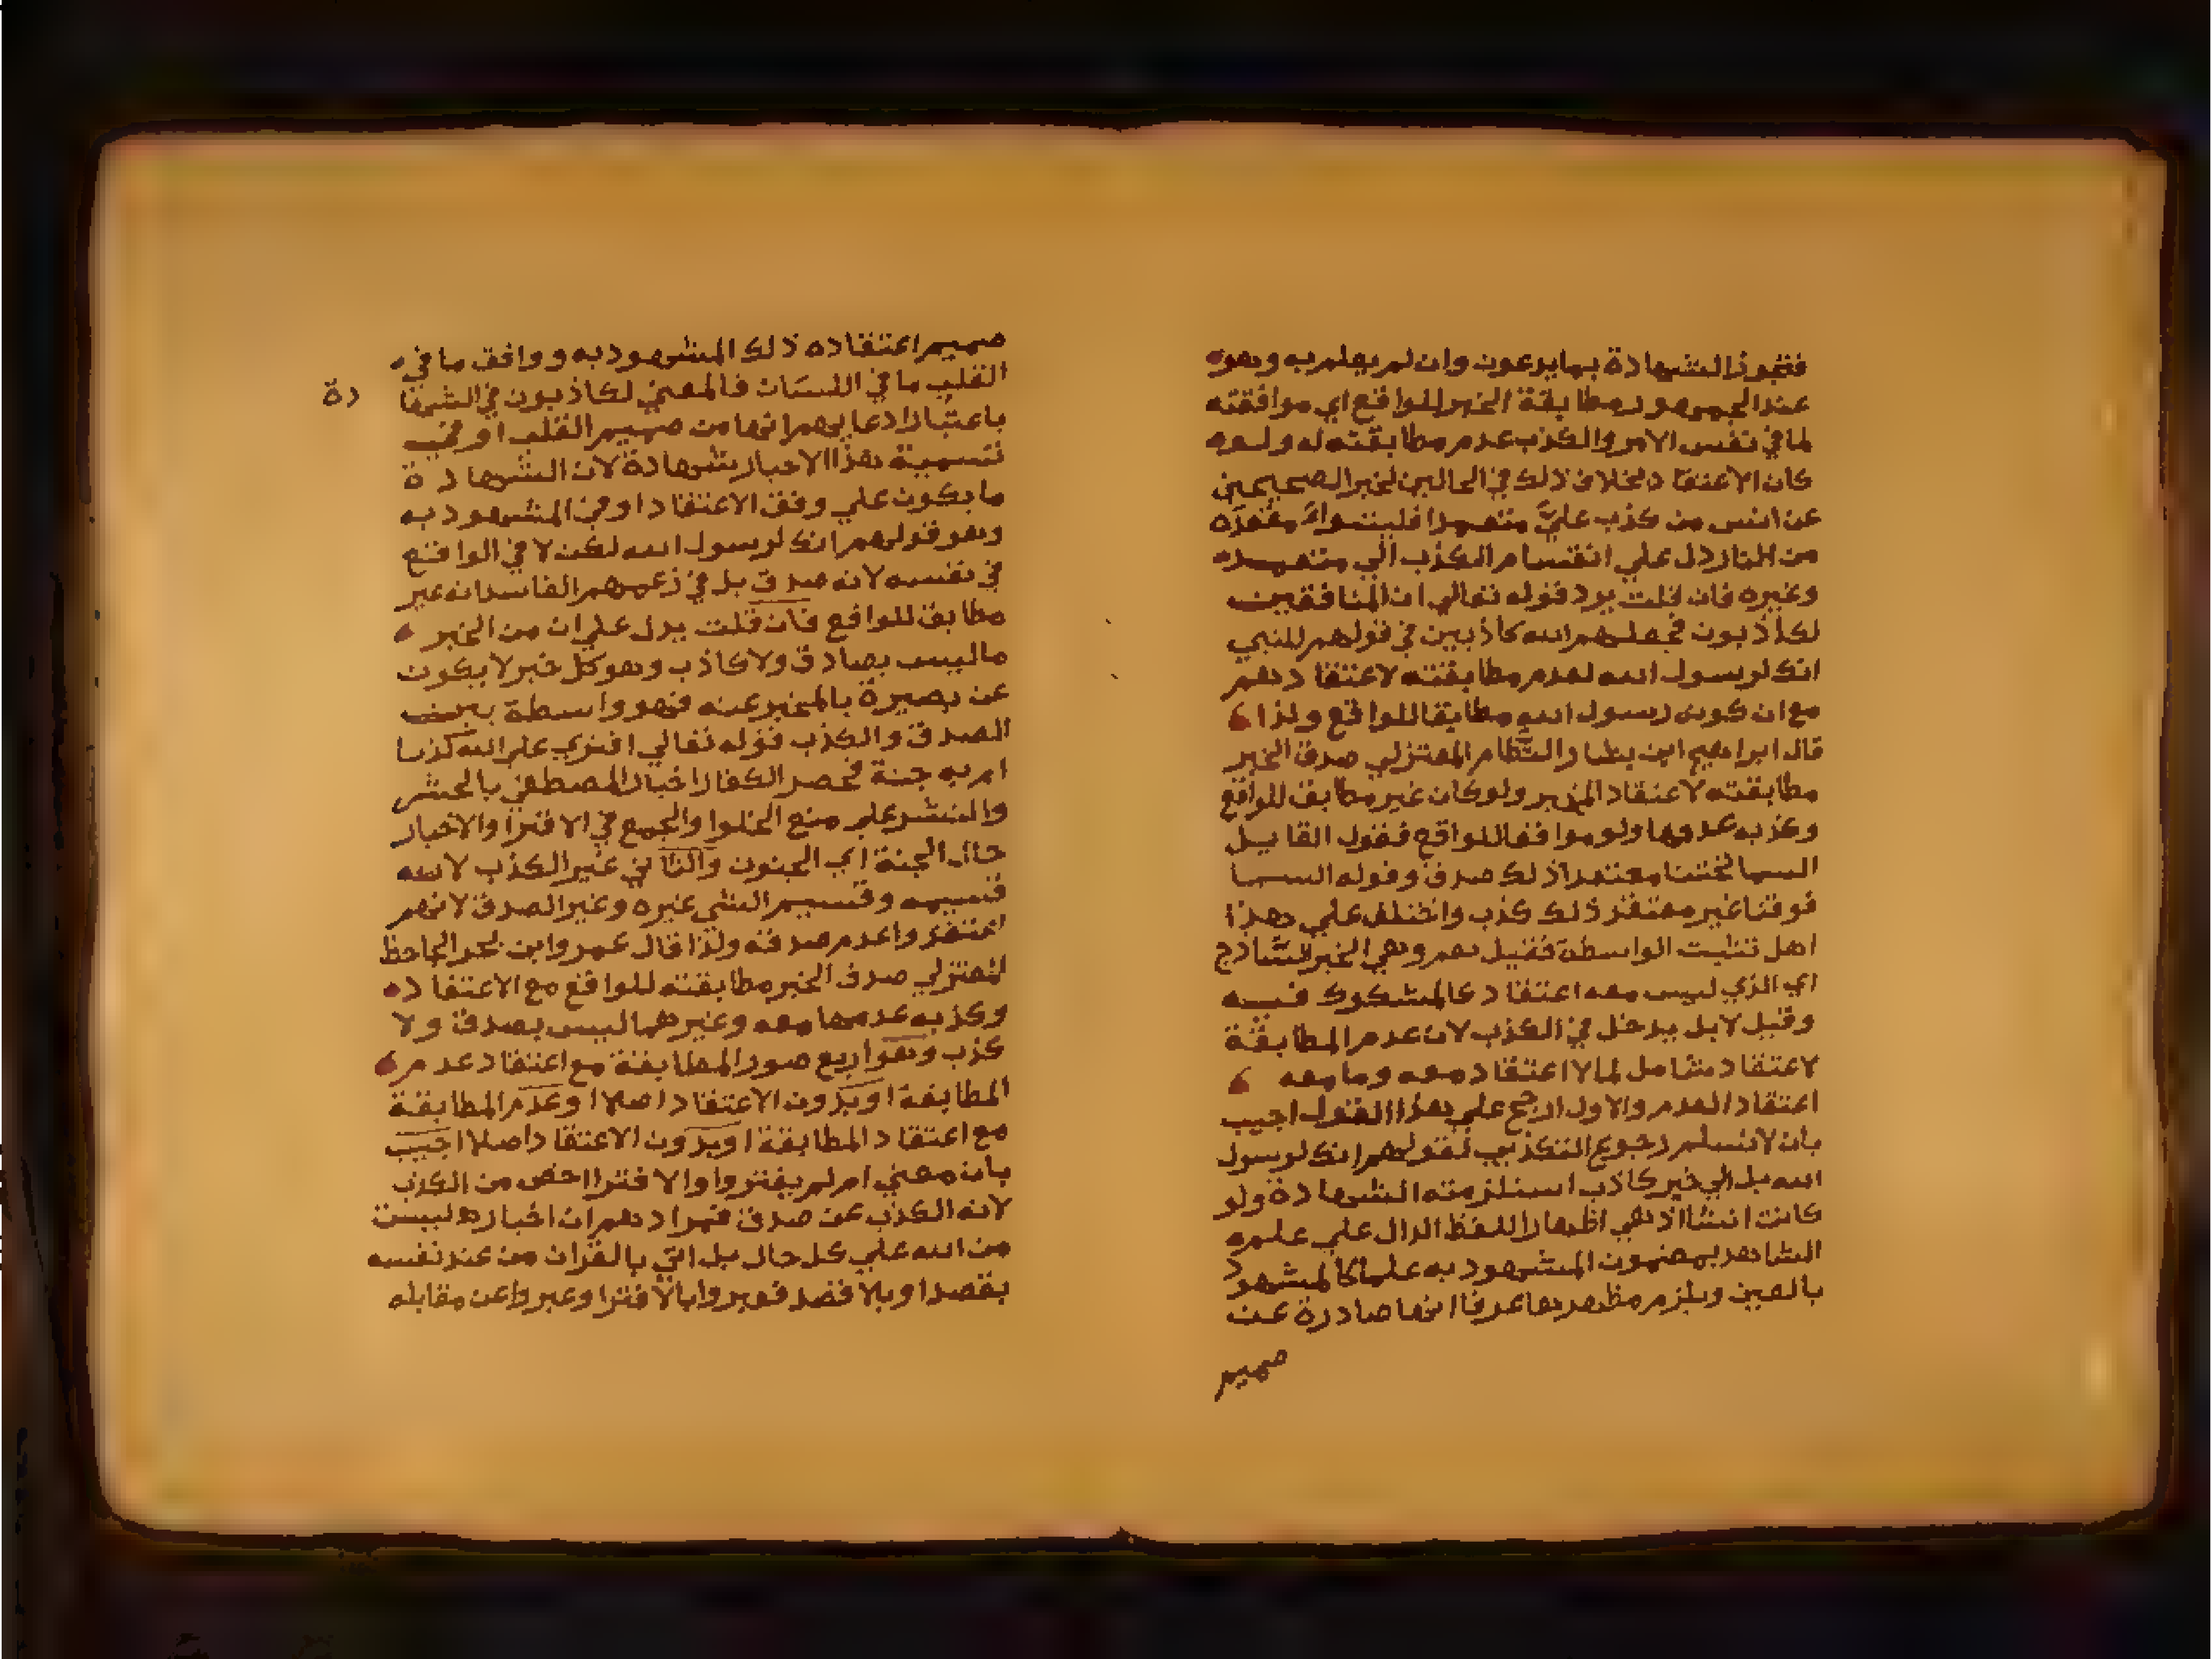 فتجوز الشهادة بما يدعون وان لم يعلم به وهو
عند الجمهور مطابقة الخبر للواقع اي موافقته
لما في نفس الامر والكذب عدم مطابقته له ولو
كان الاعتقاد بخلاف ذلك في الحالين لخبر الصحيحين
عن انس من كذب عليّ متعمدا فليتبوأ مقعده
من النار دل علي انقسام الكذب الي متعمد
وغيره فان قلت يرد قوله تعالي ان المنافقين
لكاذبون فجعلهم الله كاذبين في قولهم للنبي
انك لرسول الله لعدم مطابقته لاعتقادهم
مع ان كونه رسول الله مطابقا للواقع ولذا
قال ابراهيم ابن يسار النظام المعتزلي صدق الخبر
مطابقته لاعتقاد المخبر ولو كان غير مطابق للواقع
وكذبه عدمها ولو موافقا للواقع فقول القايل
السما تحتنا معتمدا ذلك صدق وقوله السما
فوقنا غير معتقد ذلك كذب واختلف علي هذا
اهل تثبت الواسطة فقيل نعم وهي الخبر الساذج
اي الذي ليس معه اعتقاد كالمشكوك فيه
وقيل لا بل يدخل في الكذب لان عدم المطابقة
لاعتقاد شامل لما لا اعتقاد معه وما معه
اعتقاد العدم والاول ارجح علي هذا القول اجيب
بان لا نسلم رجوع التكذيب لقولهم انك لرسول
الله بل الي خبر كاذب استلزمته الشهادة ولو
كانت انشا اذ هي اظهار اللفظ الدال علي علم
الشاهد بمضمون المشهود به علما كالمشهد
بالعين ويلزم مظهرها عرفا انها صادرة عن
صميم
صميم اعتقاده ذلك المشهود به ووافق ما في
القلب ما في اللسان فالمعني لكاذبون في الشها
دة
باعتبار ادعايهم انها من صميم القلب او في
تسمية هذا الاخبار شهادة لان الشهادة
ما يكون علي وفق الاعتقاد او في المشهود به
وهو قولهم انك لرسول الله لكن لا في الواقع
في نفسه لانه صدق بل في زعمهم الفاسد انه غير
مطابق للواقع فان قلت يدل علي ان من الخبر
ما ليس بصادق ولا كاذب وهو كل خبر لا يكون
عن بصيرة بالمخبر عنه فهو واسطة بين
الصدق والكذب قوله تعالي افتري علي الله كذبا
ام به جنة فحصر الكفار اخبار المصطفي بالحشر
والنشر علي منع الخلوا والجمع في الافترا والاخبار
حال الجنة اي الجنون والثاني غير الكذب لانه
قسيمه وقسيم الشي غيره وغير الصدق لانهم
اعتقدوا عدم صدقه ولذا قال عمرو ابن بحر الجاحظ
المعتزلي صدق الخبر مطابقته للواقع مع الاعتقاد
وكذبه عدمها معه وغيرهما ليس بصدق ولا
كذب وهو اربع صور المطابقة مع اعتقاد عدم
المطابقة او بدون الاعتقاد اصلا او عدم المطابقة
مع اعتقاد المطابقة او بدون الاعتقاد اصلا اجيب
بان معني ام لم يفتروا والافترا اخص من الكذب
لانه الكذب عن صدق فمرادهم ان اخباره ليست
من الله علي كل حال بل اتي بالقران من عند نفسه
بقصد او بلا قصد فعبروا بالافترا وعبروا عن مقابله